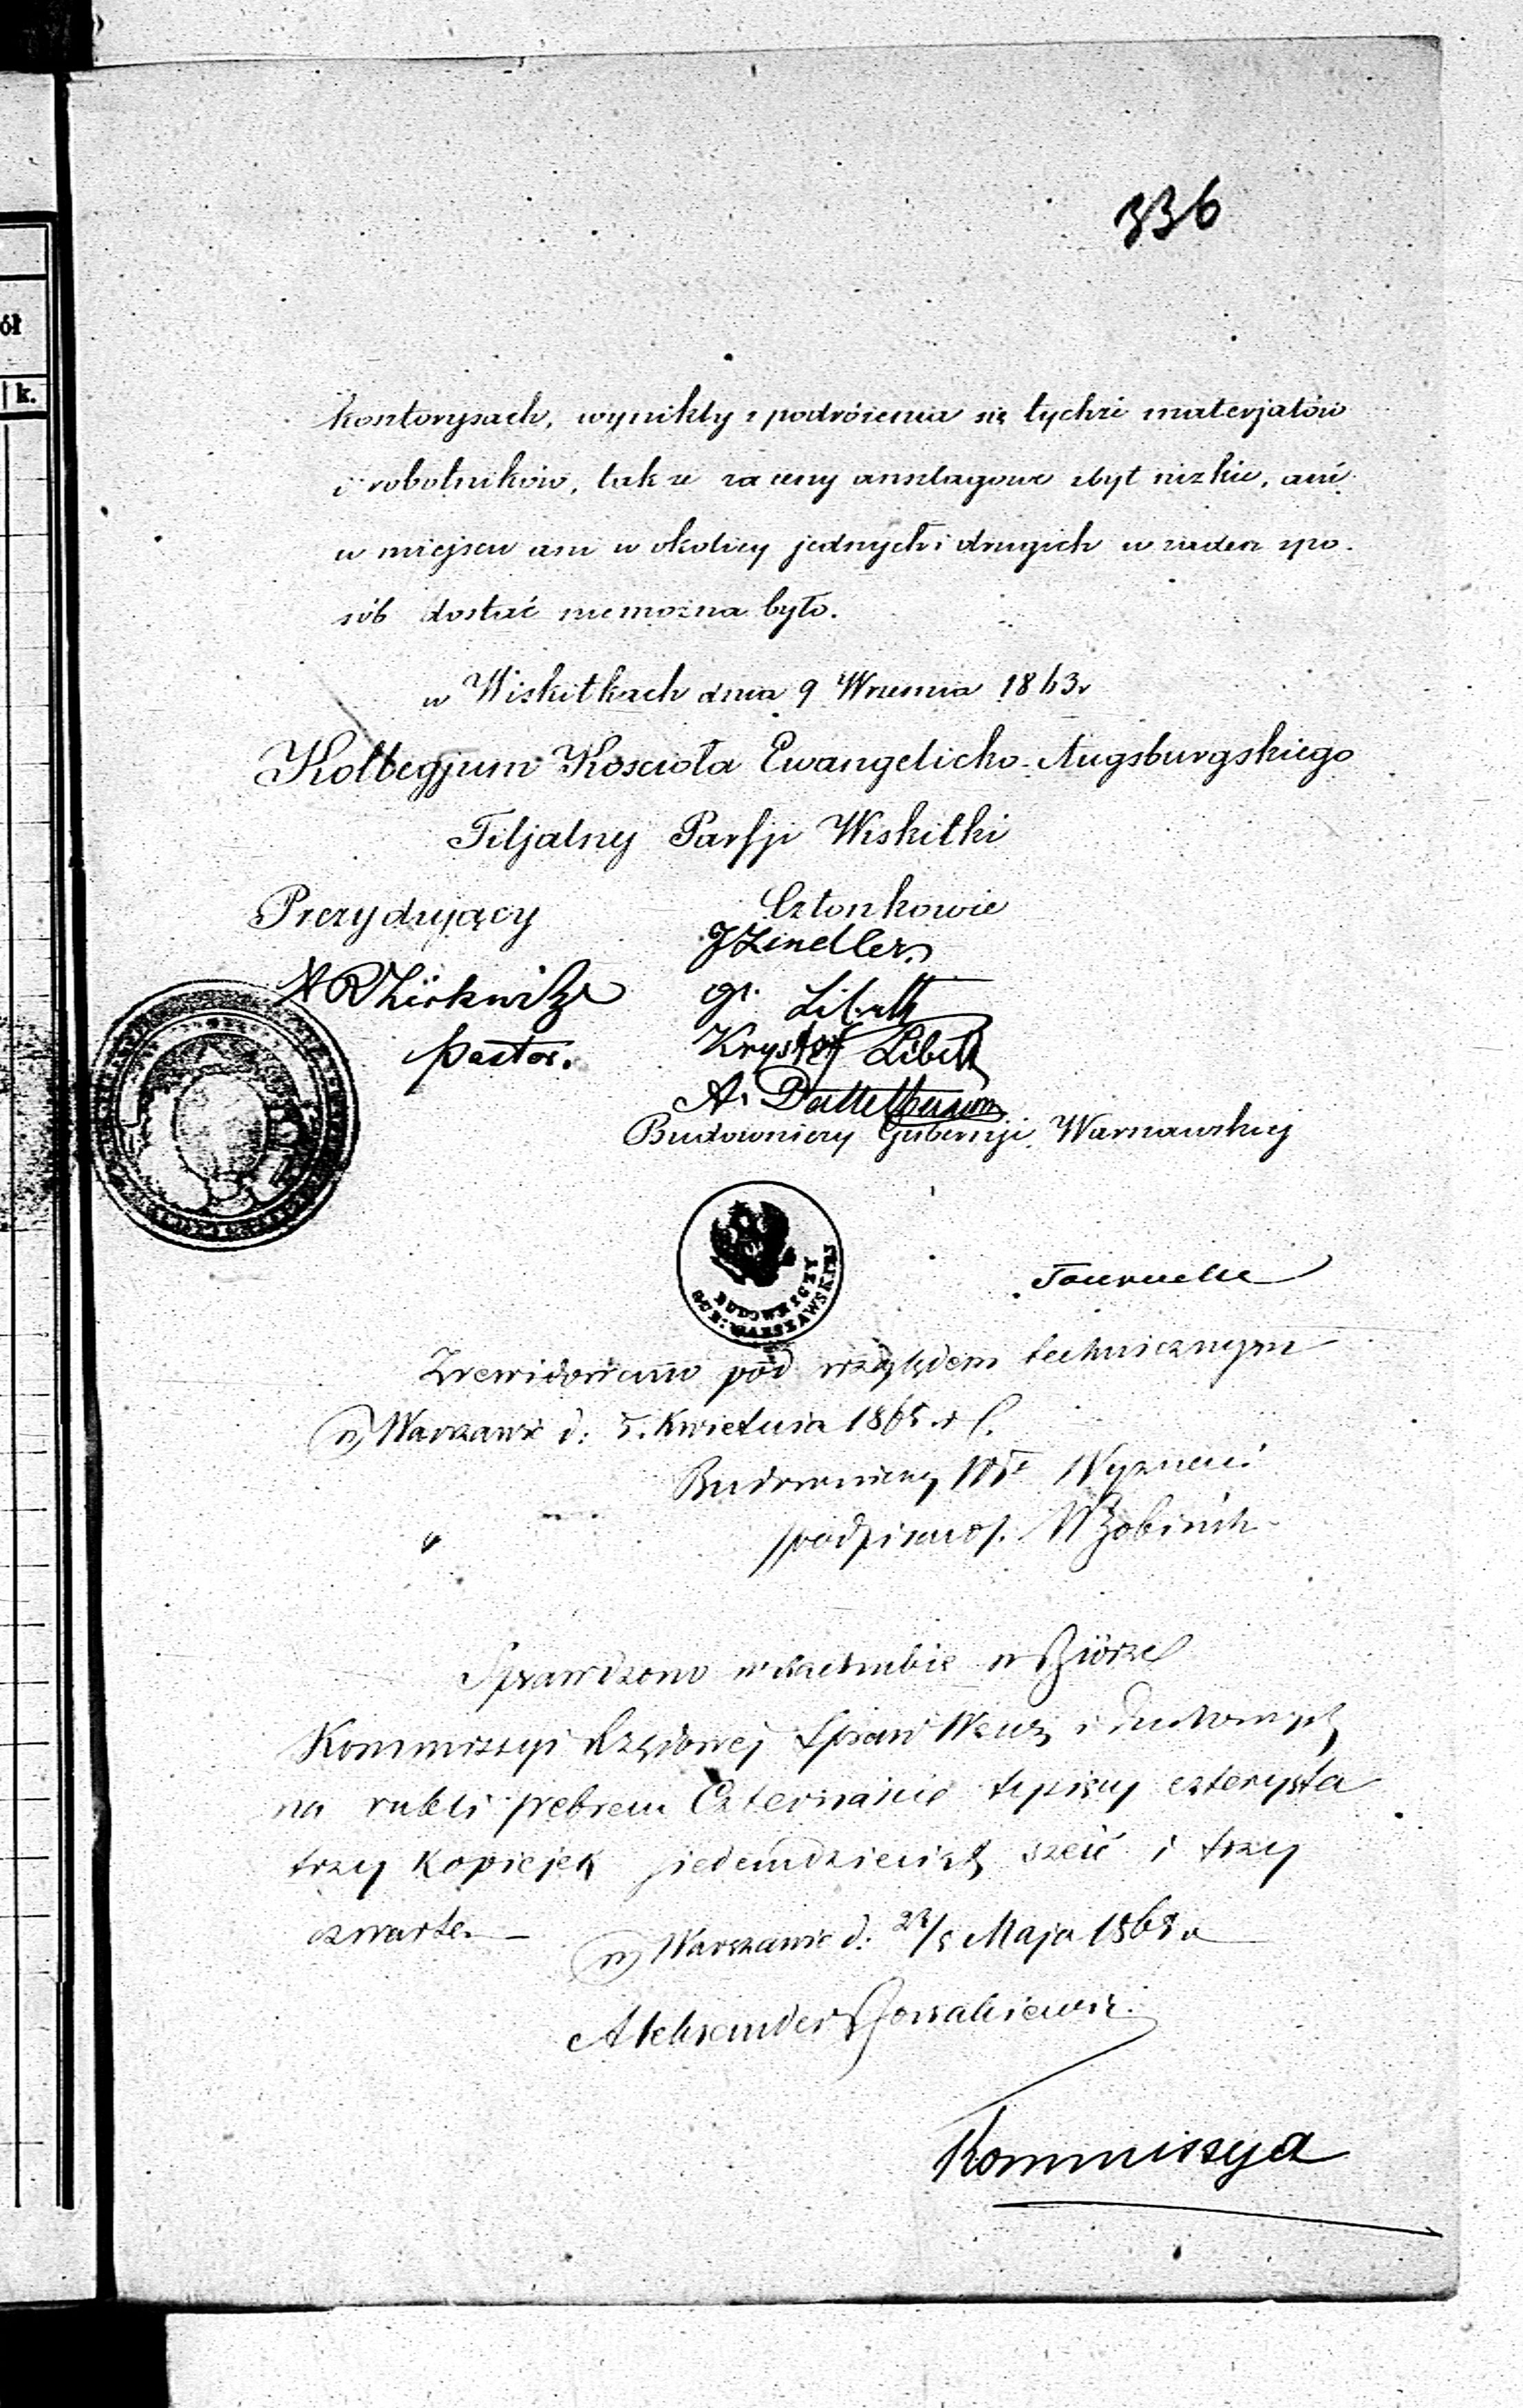 336
ół
k.
kosztorysach, wynikły z podrożenia się tychże materjałów
i robotników, tak że za ceny anszlagowe zbyt nizkie, ani
w miejscu ani w okolicy jednych i drugich w żaden spo-
sób dostać niemożna było.
w Wiskitkach dnia 9 Września 1863 r
Kollegjum Kościoła Ewangelicko-Augsburgskiego
Filjalny Parfji Wiskitki
Prezydujący Członkowie
J Zindler
gr. Libelt
Pastor. Krysztof Libelt
A.
Budowniczy Gubernji Warszawskiej
BUDOWNICZY
GUB: WARSZAWSKIEJ
Zrewidowano pod względem technicznym
w Warszawie d: 5. Kwietnia 1865 r
Budowniczy Wyznań
/podpisano/.
Sprawdzono w rachubie w Biórze
Kommissyi Rządowej Spraw Wewn i Duchownych
na rubli srebrem Czternaście tysięcy czterysta
trzy kopiejek siedemdziesiąt sześć i trzy
czwarte. —
w Warszawie d: Maja 1865 r
Aleksander
Kommissya